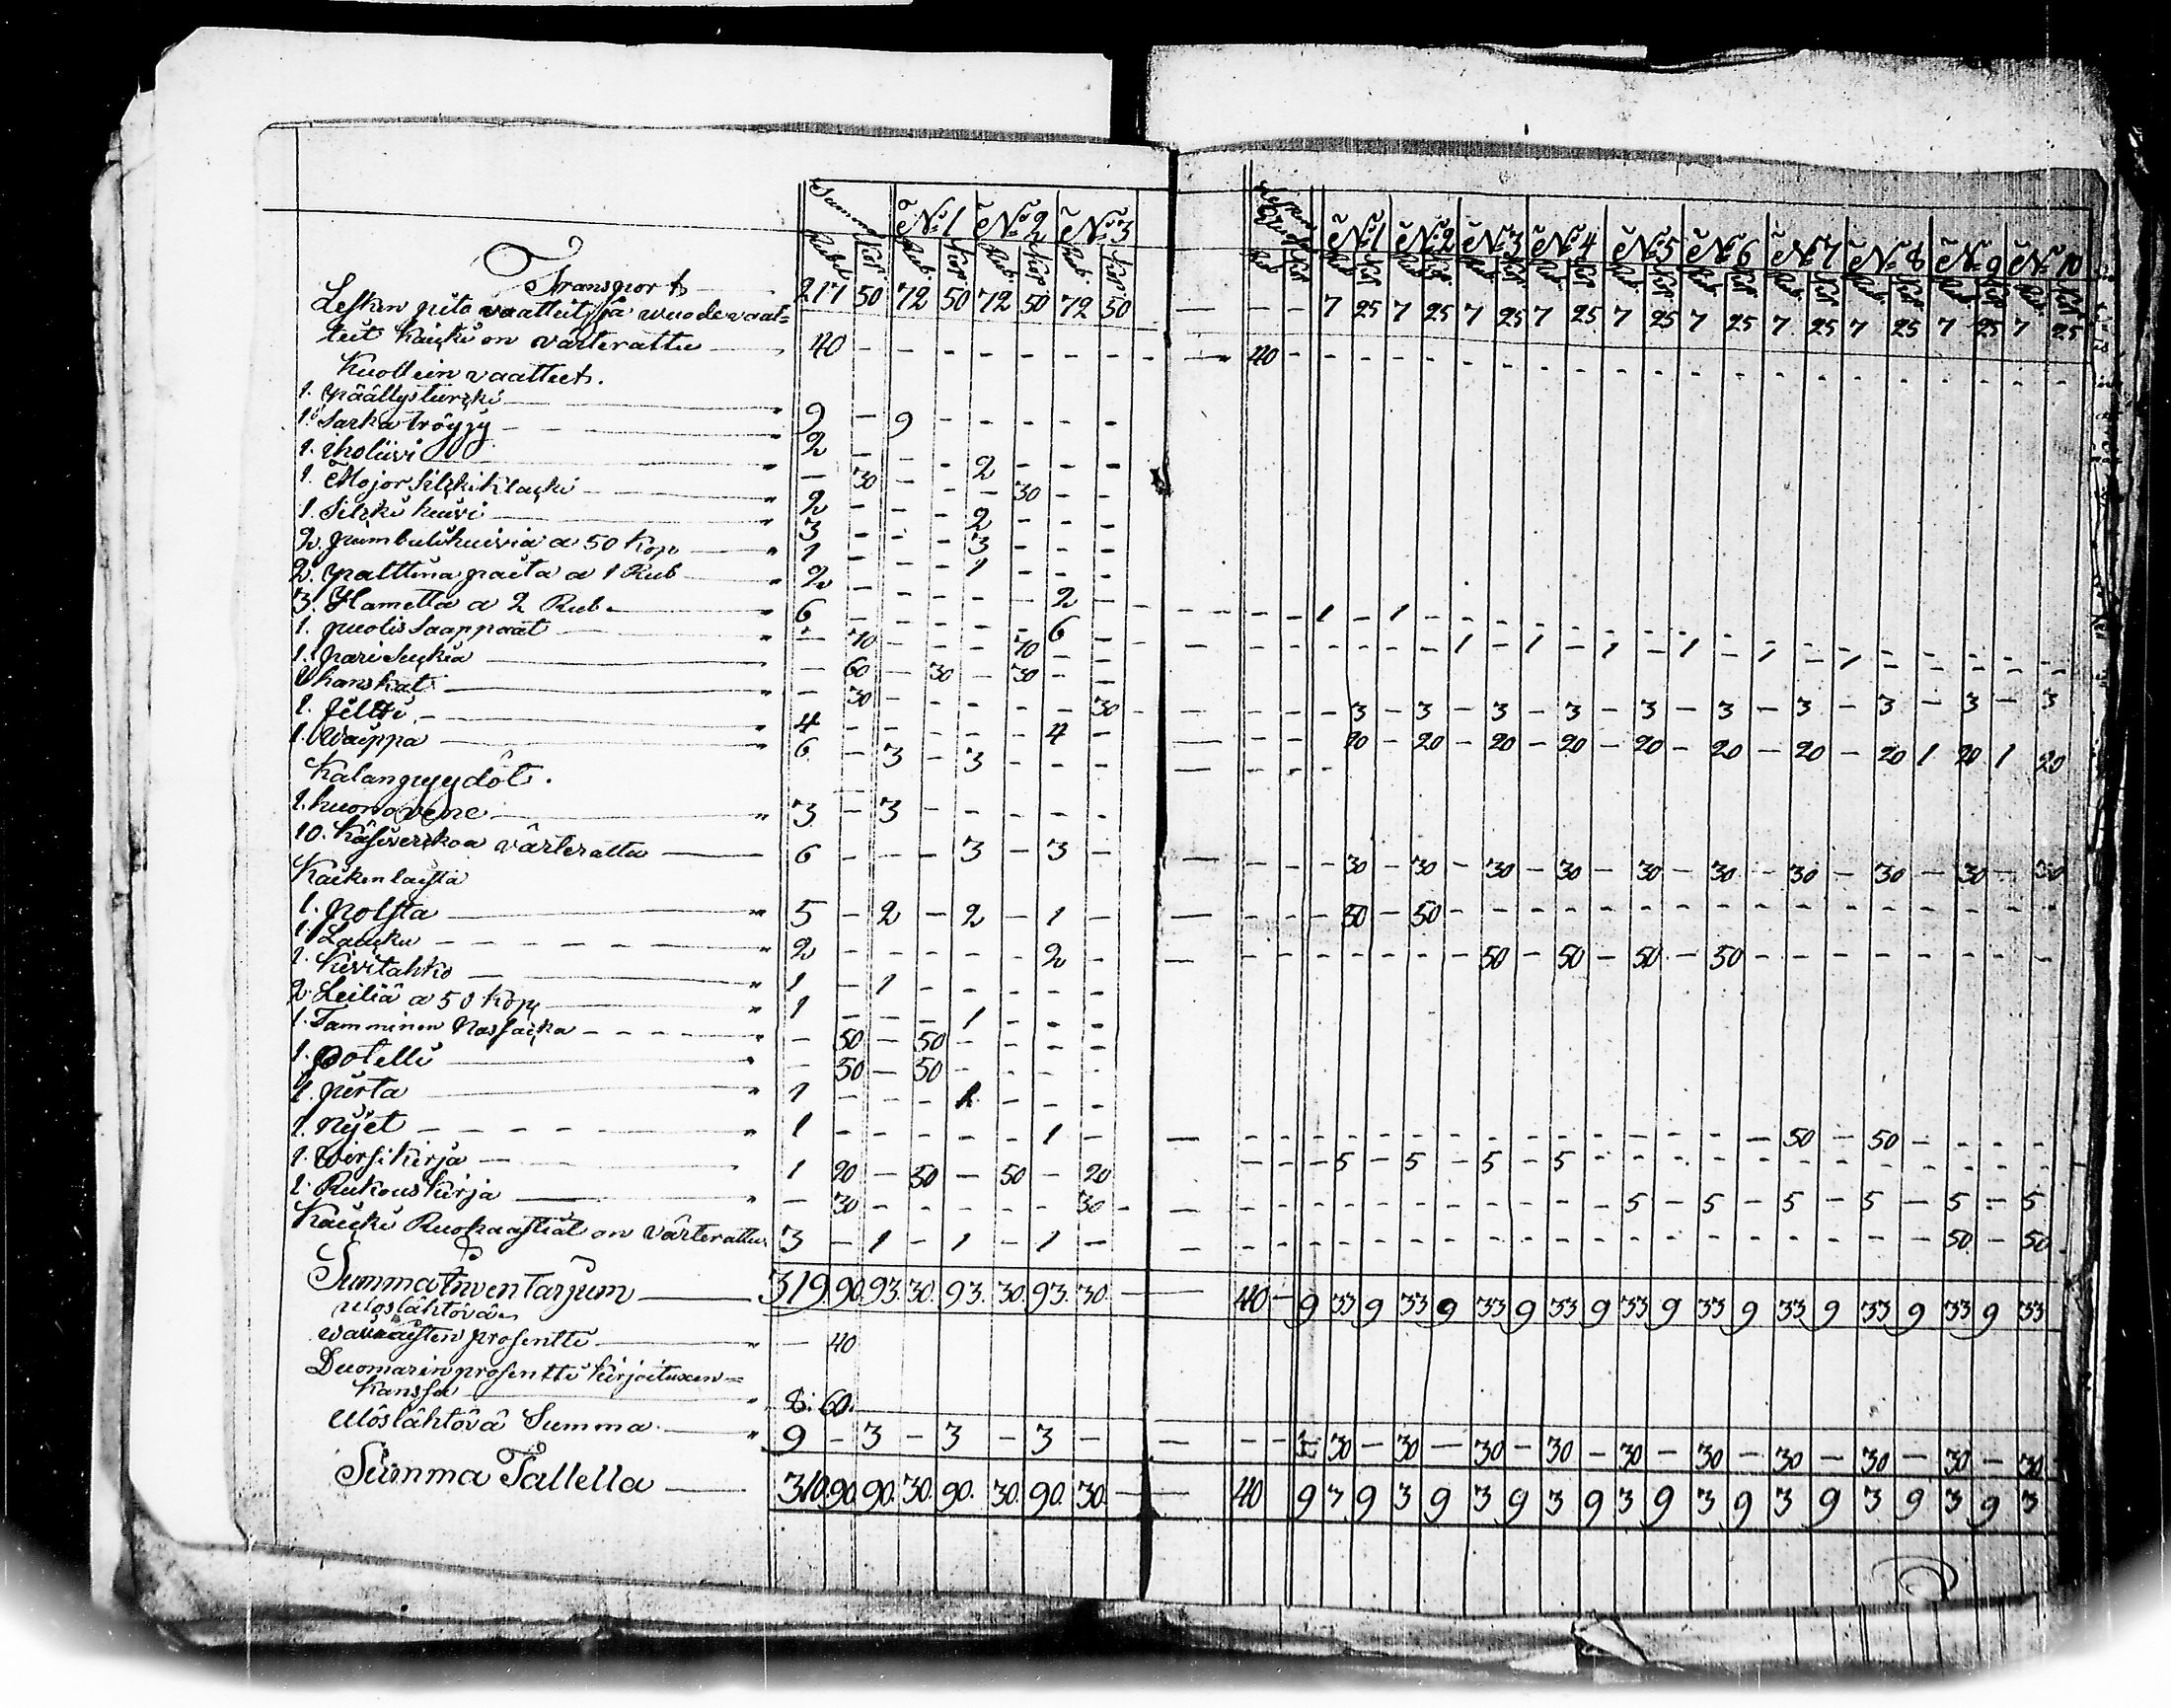 Summa № 1 № 2 № 3 № 1 № 2 № 3 № 4 № 5 № 6 № 7 № 8 № 9 № 10
Rubel Kop. Rub. Kop. Rub. Kop. Rub. Kop. Rub. Kop. Rub. Kop. Rub. Kop. Rub. Kop. Rub. Kop. Rub. Kop. Rub. Kop. Rub. Kop. Rub. Kop. Rub. Kop. Rub. Kop.
Transport — 217 50 72 50 72 50 72 50 — — — 7 25 7 25 7 25 7 25 7 25 7 25 7 25 7 25 7 25 7 25
Lesken pito vaatteit ja wuodevaat=
teit Kaicki on värterattu — 40 - - - - - - - — " 40 - - - - - - - - - - - - - - - - - - - - -
Kuollein vaatteet.
1. päällysturcki — " 9 — 9 - - - - -
1. Sarka tröyjy — " 2 - - - 2 - - -
1. — " — 30 - - - 30 - -
1. — " 2 - - - 2 - - -
1. Silcki huivi — " 3 - - - 3 - - -
2. pumbulihuivia a 50 Kop — " 1 - - - 1 - - -
2. palttina paita a 1 Rub — " 2 - - - - - 2 - - - - - 1 - 1 - - - - - - - - - - - - - - - -
3. Hametta a 2 Rub. — " 6 - - - - - 6 - - - - - - - - 1 - 1 - 1 - 1 - 1 - 1 - - - -
1. puolisaappaat — " — 70 - - - 70 - -
1. pari Suckia — — 60 — 30 — 30 - -
1 kanskat — — 30 - - - - - 30 — — - - - 3 — 3 — 3 — 3 — 3 — 3 — 3 — 3 — 3 — 3
1. fältti — 4 - - - - - 4 - — - - 20 - 20 - 20 - 20 - 20 - 20 - 20 - 20 1 20 1 20
1. Waippa — 6 — 3 — 3 - - - — - - -
Kalanpyydöt.
1. huono vene — " 3 — 3 - - - - -
10. Käsiverckoa värterattu — 6 - - - 3 — 3 - — - - - 30 - 30 - 30 - 30 - 30 - 30 - 30 - 30 - 30 - 30
Kaickenlaista
1. polsta — " 5 — 2 — 2 — 1 - — - - - 50 - 50 - - - - - - - - - - - - - - - -
1. Laucku — " 2 - - - - - 2 - — - - - - - - - 50 - 50 - 50 - 50 - - - - - - - -
1. Kivitahko — " 1 — 1 - - - - -
2. Leiliä a 50 Kop — " 1 - - - 1 - - -
1. Tamminen Nassacka — — 50 — 50 - - - -
1. potelli — " — 50 — 50 - - - -
1. pirta — " 1 - - - 1 - - -
1. nijet — " 1 - - - - - 1 - — - - - - - - - - - - - - - - - 50 - 50 - - - -
1. Wirsikirja — " 1 20 — 50 — 50 — 20 - - - 5 - 5 - 5 - 5 - - - - - - - - - - - -
1. Rukouskirja — " — 30 - - - - - 30 - — - - - - - - - - - - - 5 - 5 - 5 - 5 - 5 - 5
Kaicki Ruokaastiat on värterattu 3 — 1 — 1 — 1 - — - - - - - - - - - - - - - - - - - - - 50 - 50
Summa Inventarjum — 319. 90. 93. 30. 93. 30. 93. 30. — 40 - 9 33 9 33 9 33 9 33 9 33 9 33 9 33 9 33 9 33 9 33
Uloslähtövä
Waivaisten prosentti — " — 40
Duomarin prosentti kirjoituxen=
kanssa — " 8. 60.
Ulöslähtövä Summa — " 9 — 3 — 3 — 3 - — - - 30 - 30 - 30 - 30 - 30 - 30 - 30 - 30 - 30 - 30
Summa Tallella — 310. 90. 90. 30. 90. 30. 90. 30. — 40 9 3 9 3 9 3 9 3 9 3 9 3 9 3 9 3 9 3 9 3